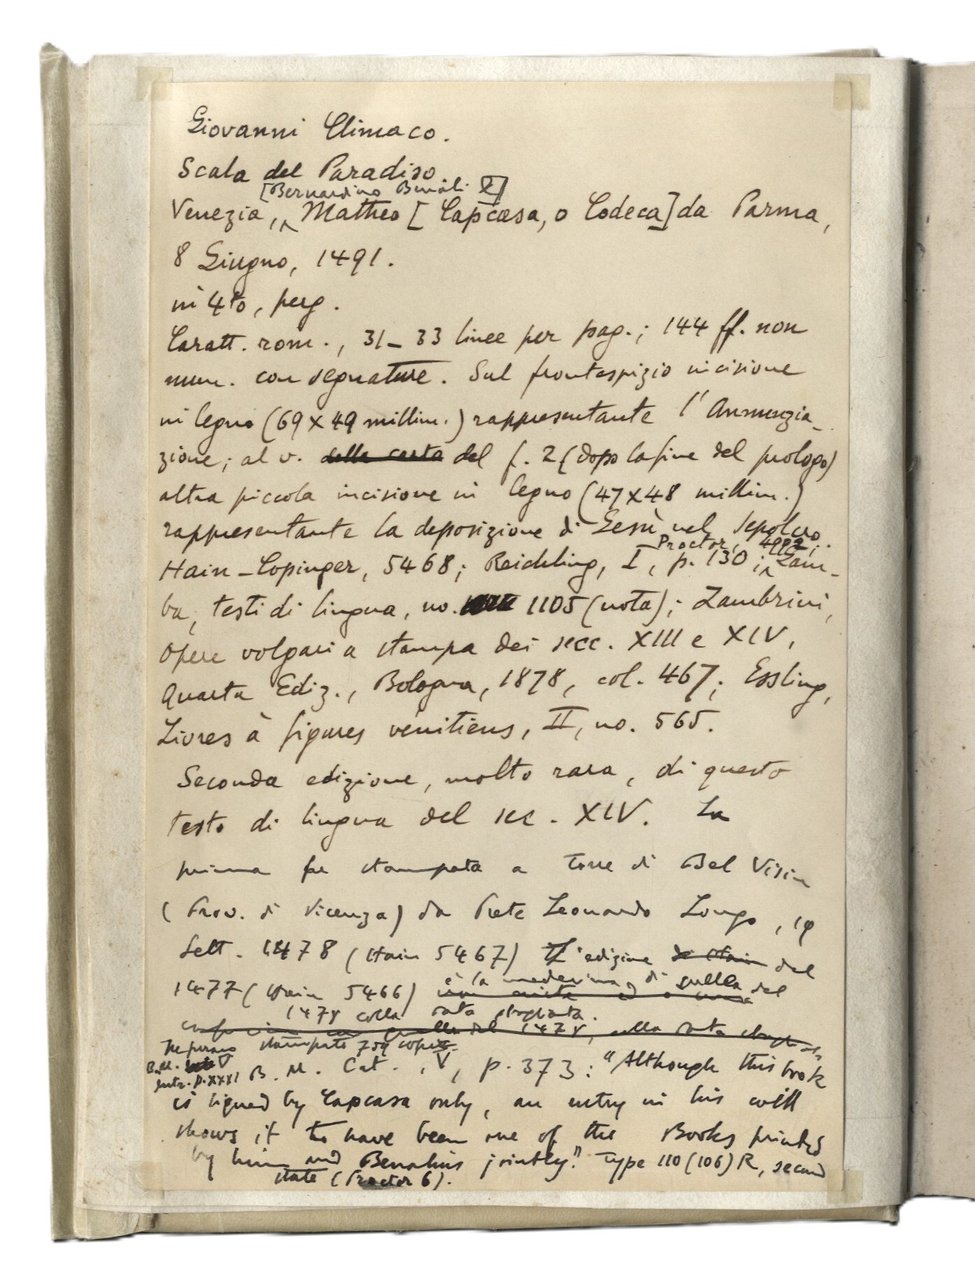 Giovanni Climaco.
Scala del Paradiso.
[Bernardino Benali &]
Venezia, Mattheo [Capcasa, o Codeca] da Parma,
8 Giugno, 1491.
in 4to, perg.
Caratt. rom., 31-33 linee per pag.; 144 ff. non
num. con segnature. Sul frontespizio incisione
in legno (69 x 49 millim.) rappresentante l'Annunzia-
zione; al v. della carta del f. 2 (dopo la fine del prologo)
altra piccola incisione in legno (47 x 48 millim.)
rappresentante la deposizione di Gesù nel Sepolcro.
Proctor, 4992;
Hain-Copinger, 5468; Reichling, I, p. 130; Zam-
ba, testi di lingua, no. 1105 (nota); Zambrini,
Opere volgari a stampa dei secc. XIII e XIV,
Quarta Ediz., Bologna, 1878, col. 467; Essling,
Livres à figures vénitiens, II, no. 565.
Seconda edizione, molto rara, di questo
testo di lingua del sec. XIV. La
prima fu stampata a Torre di Bel Vicin
(Prov. di Vicenza) da Prete Leonardo Longo, 19
Sett. 1478 (Hain 5467) L'edizione de Hain del
1477 (Hain 5466) è la medesima di quella del
1478 colla data sbagliata.
quella del 1478, colla data
Ne furono stampate 709 copie
B.M. V
Intr. p. XXXI B. M. Cat., V, p. 373: "Although this book
is signed by Capcasa only, an entry in his will
shows it to have been one of the Books printed
by him and Benalius jointly." Type 110 (106) R, second
state (Proctor 6).